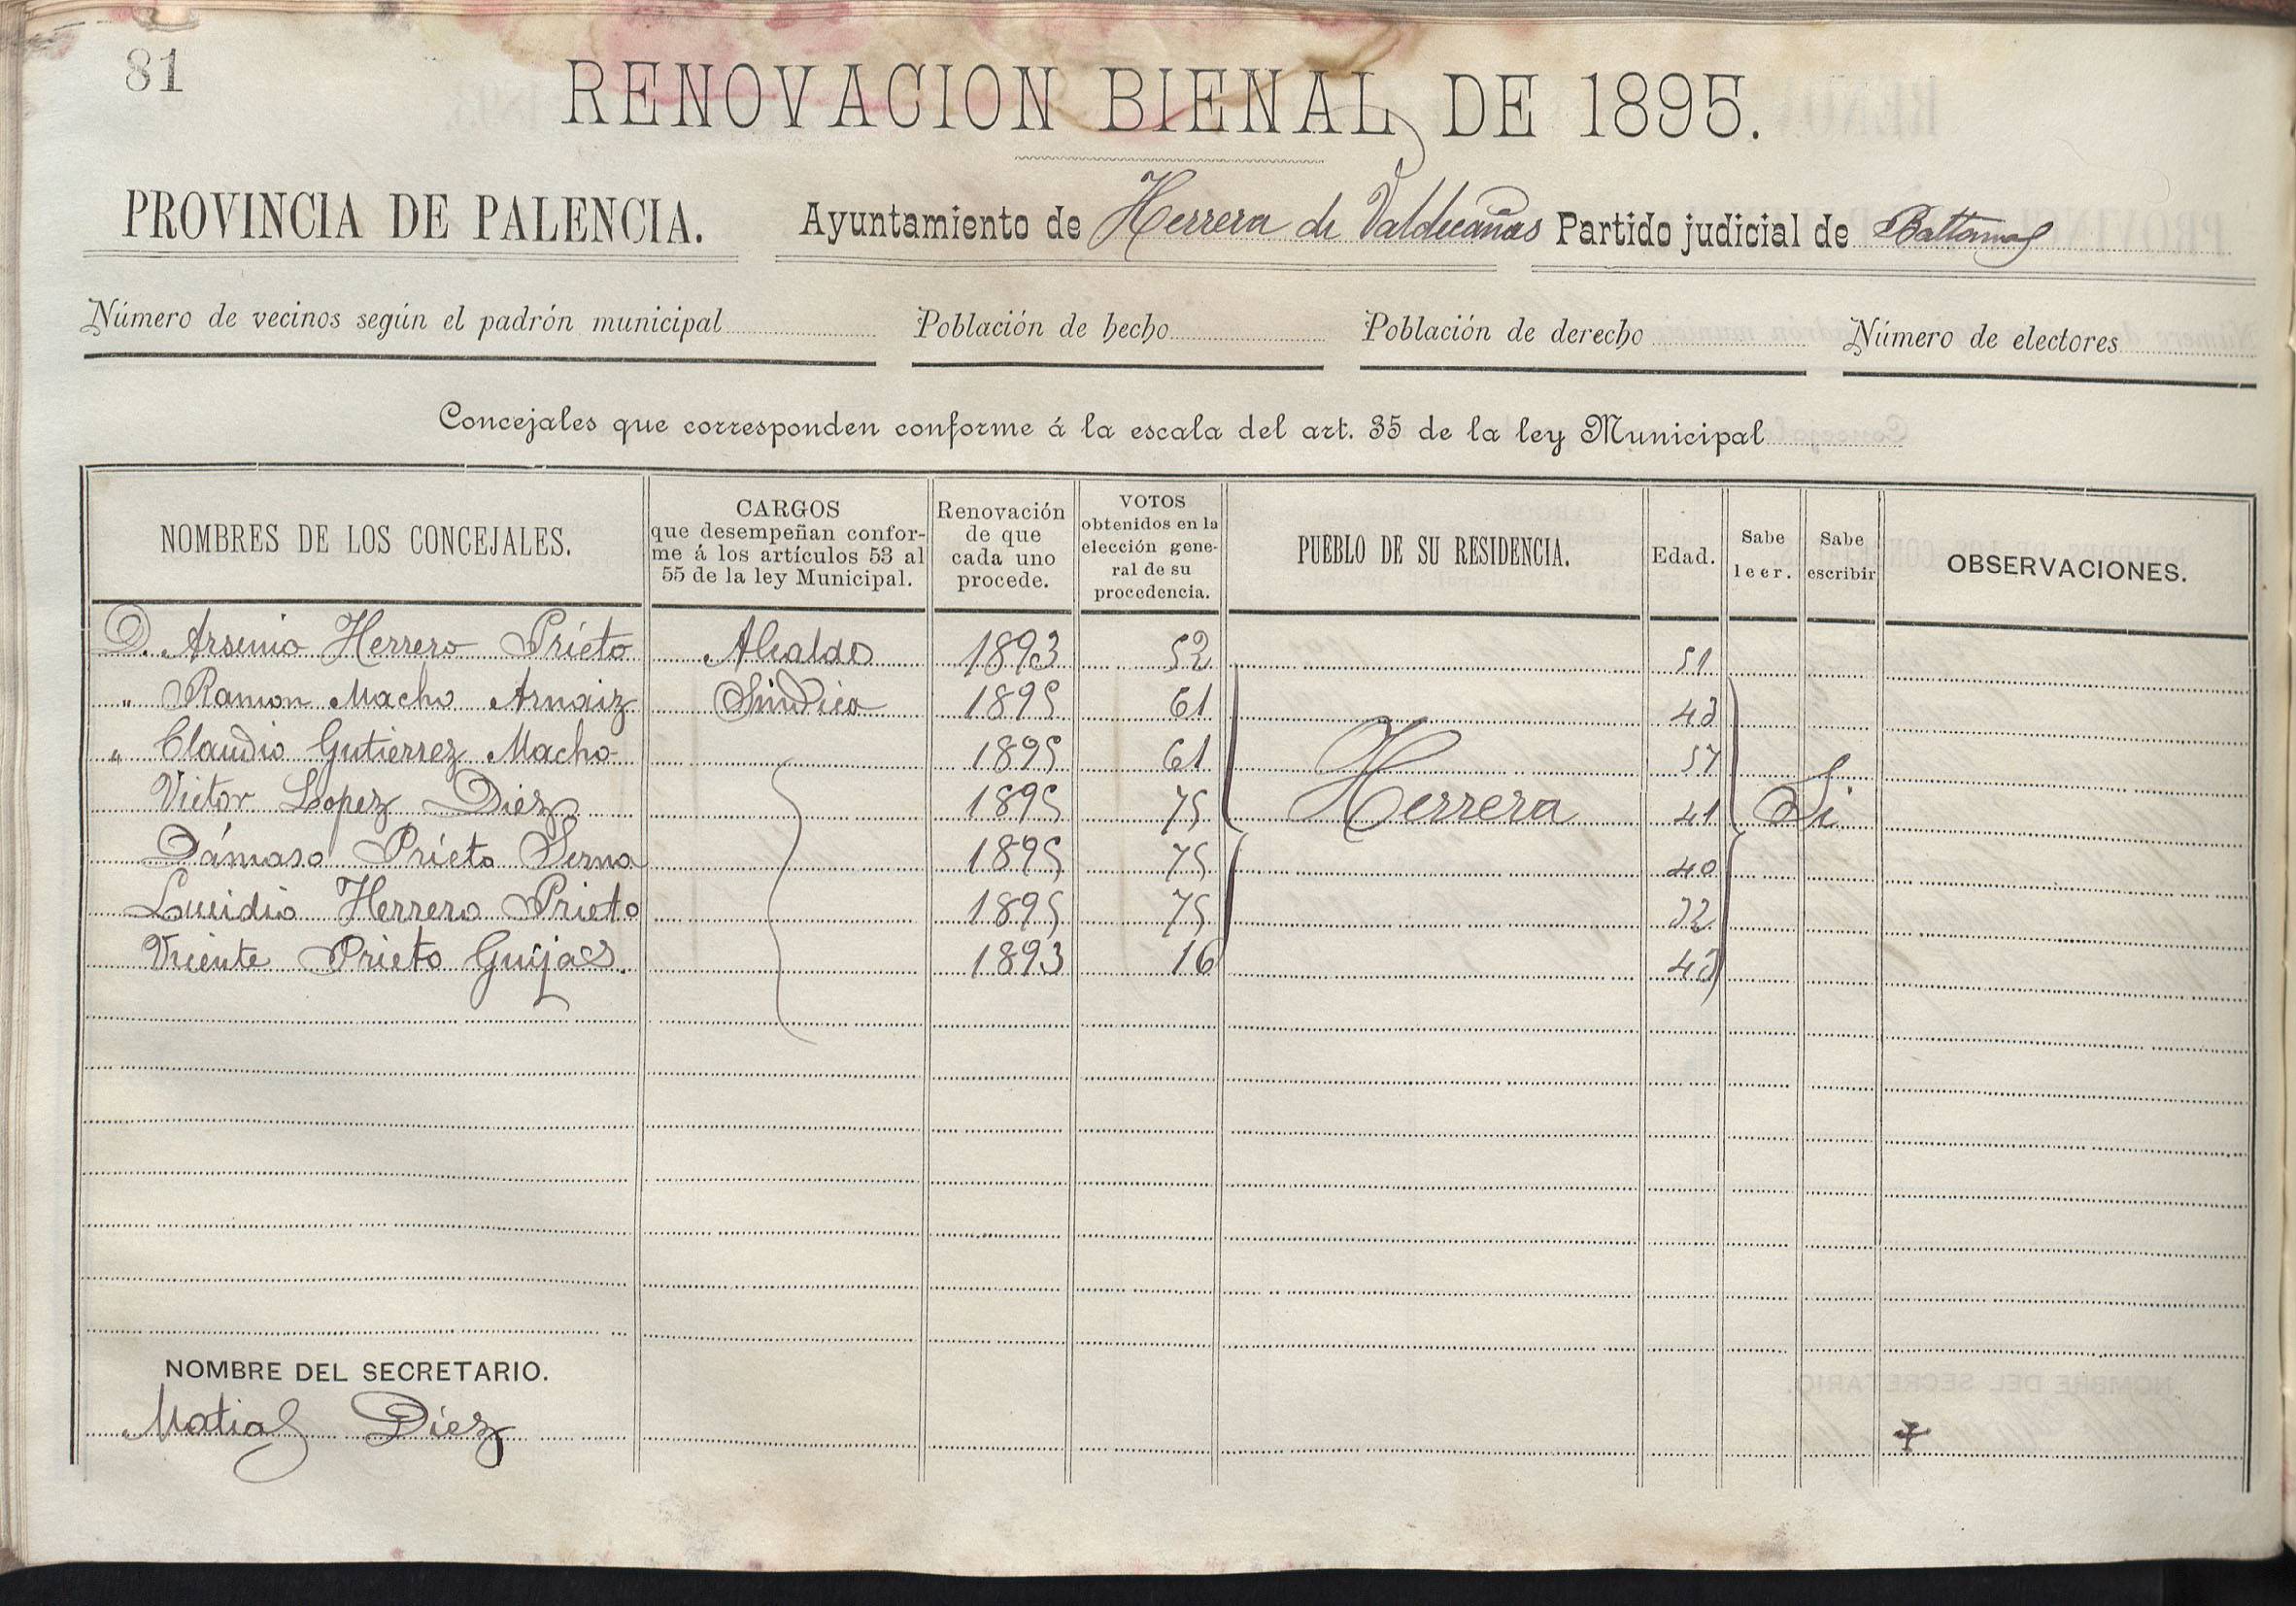 81
RENOVACION BIENAL DE 1895.
PROVINCIA DE PALENCIA. Ayuntamiento de Herrera de Valdecañas Partido judicial de Baltanas
Número de vecinos según el padrón municipal Población de hecho Población de derecho Número de electores
Concejales que corresponden conforme á la escala del art. 35 de la ley Municipal
NOMBRES DE LOS CONCEJALES. CARGOS que desempeñan confor-me á los artículos 53 al 55 de la ley Municipal. Renovación de que cada uno procede. VOTOS obtenidos en la elección gene-ral de su procedencia. PUEBLO DE SU RESIDENCIA. Edad. Sabe leer. Sabe escribir OBSERVACIONES.
D. Arsenio Herrero Prieto Alcalde 1893 52 51
" Ramon Macho Arnaiz Síndico 1895 61 43
" Claudio Gutierrez Macho 1895 61 57
Victor Lopez Diez 1895 75 Herrera 41 Si
Dámaso Prieto Serna 1895 75 40
Lucidio Herrero Prieto 1895 75 32
Vicente Prieto Guijas. 1893 16 43
NOMBRE DEL SECRETARIO.
Matias Diez